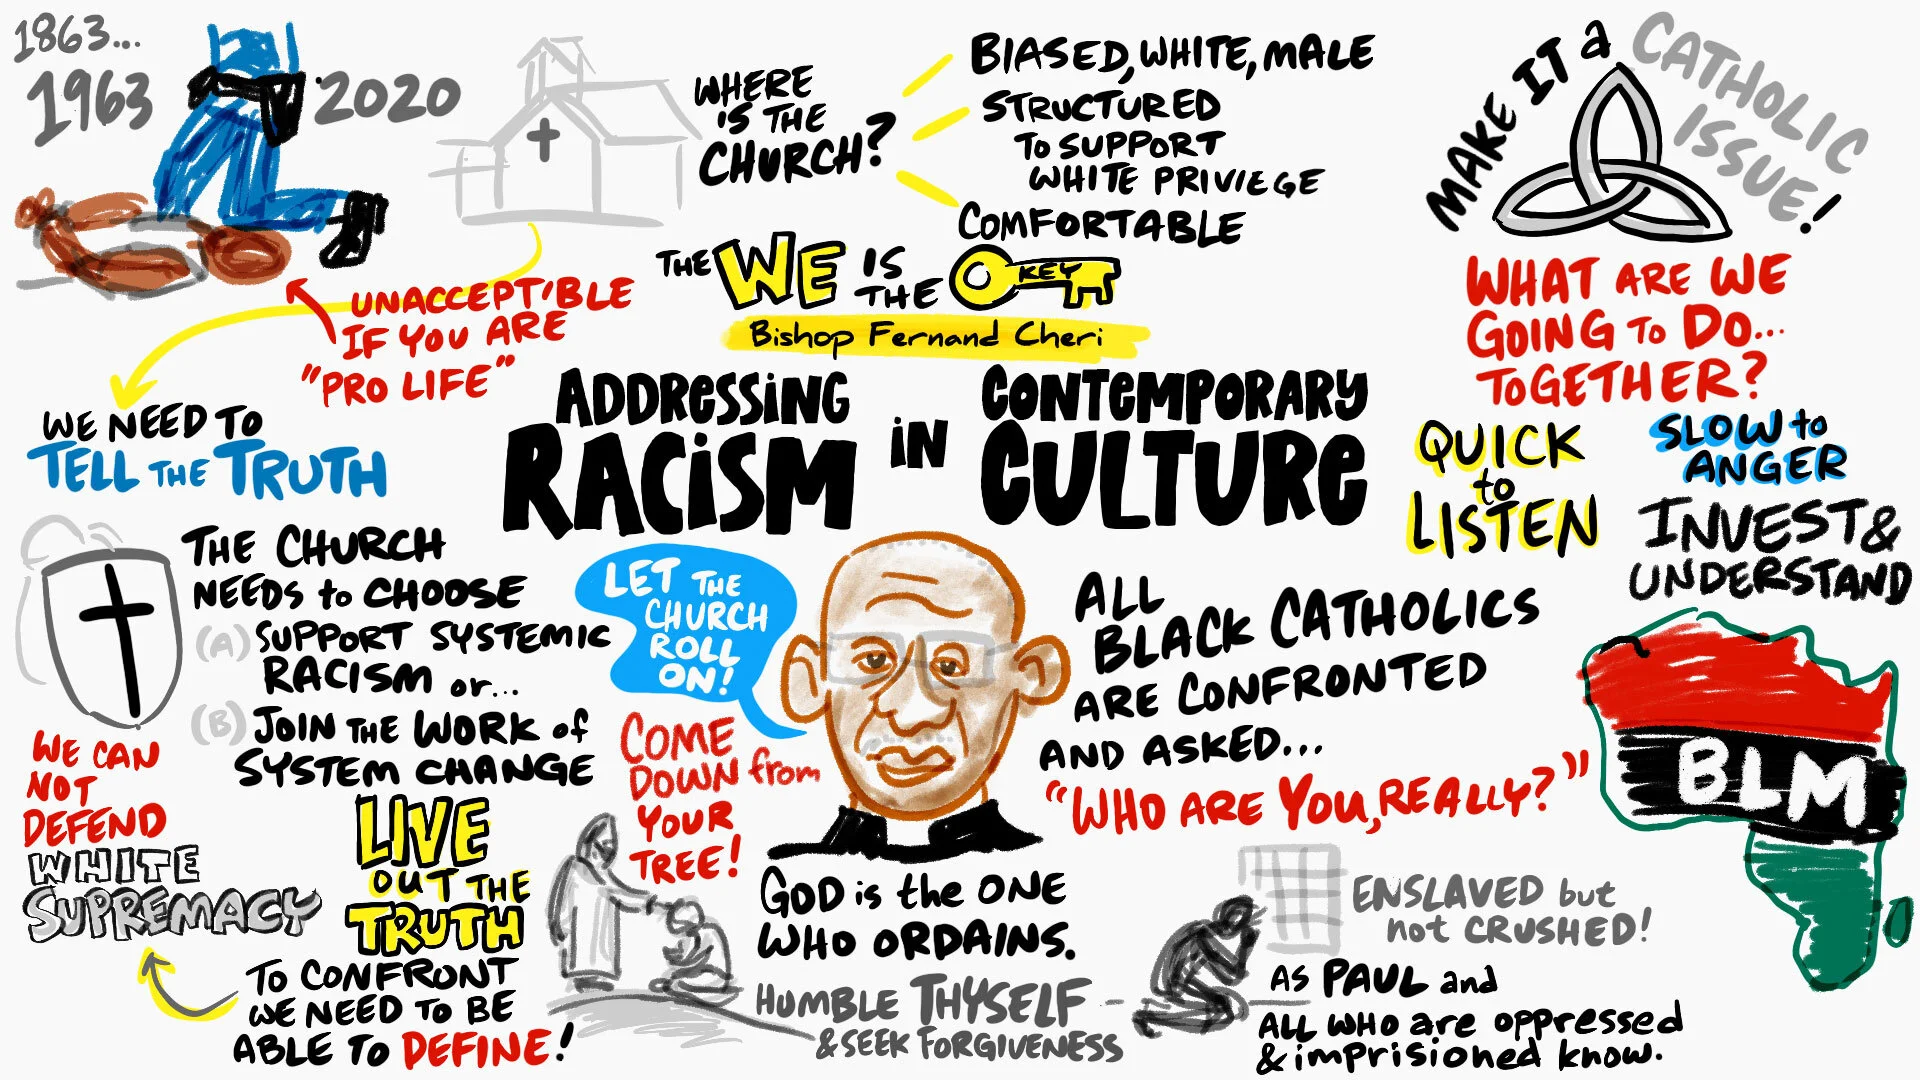 1863...
1963
2020
UNACCEPTIBLE
IF YOU ARE
"PRO LIFE"
WHERE
IS THE
CHURCH?
BIASED, WHITE, MALE
STRUCTURED
TO SUPPORT
WHITE PRIVIEGE
COMFORTABLE
THE WE IS THE KEY
Bishop Fernand Cheri
ADDRESSING
RACISM
IN
CONTEMPORARY
CULTURE
MAKE IT a
CATHOLIC
ISSUE!
WHAT ARE WE
GOING TO DO...
TOGETHER?
QUICK
to
LISTEN
SLOW to
ANGER
INVEST &
UNDERSTAND
WE NEED TO
TELL THE TRUTH
THE CHURCH
NEEDS to CHOOSE
(A) SUPPORT SYSTEMIC
RACISM or...
(B) JOIN THE WORK of
SYSTEM CHANGE
WE CAN
NOT
DEFEND
WHITE
SUPREMACY
LIVE
OUT THE
TRUTH
TO CONFRONT
WE NEED TO BE
ABLE TO DEFINE!
LET THE
CHURCH
ROLL
ON!
COME
DOWN from
YOUR
TREE!
GOD is the ONE
WHO ORDAINS.
HUMBLE THYSELF
& SEEK FORGIVENESS
ALL
BLACK CATHOLICS
ARE CONFRONTED
AND ASKED...
"WHO ARE YOU, REALLY?"
BLM
ENSLAVED but
not CRUSHED!
AS PAUL and
ALL WHO are oppressed
& imprisioned know.